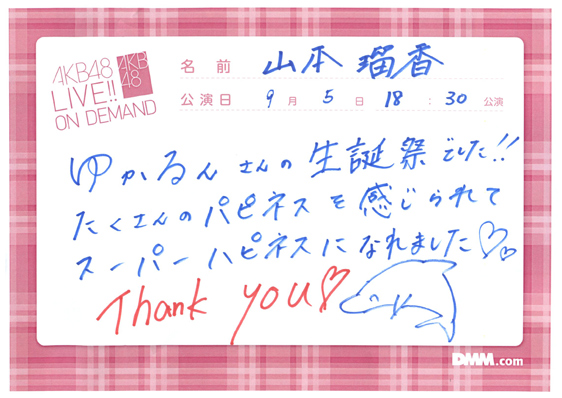 AKB48
LIVE!!
ON DEMAND
AKB
48
名前 山本 瑠香
公演日 9月 5日 18:30 公演
ゆかるんさんの生誕祭でした!!
たくさんのパピネスを感じられて
スーパーハピネスになれました♡♡
Thank you♡
DMM.com